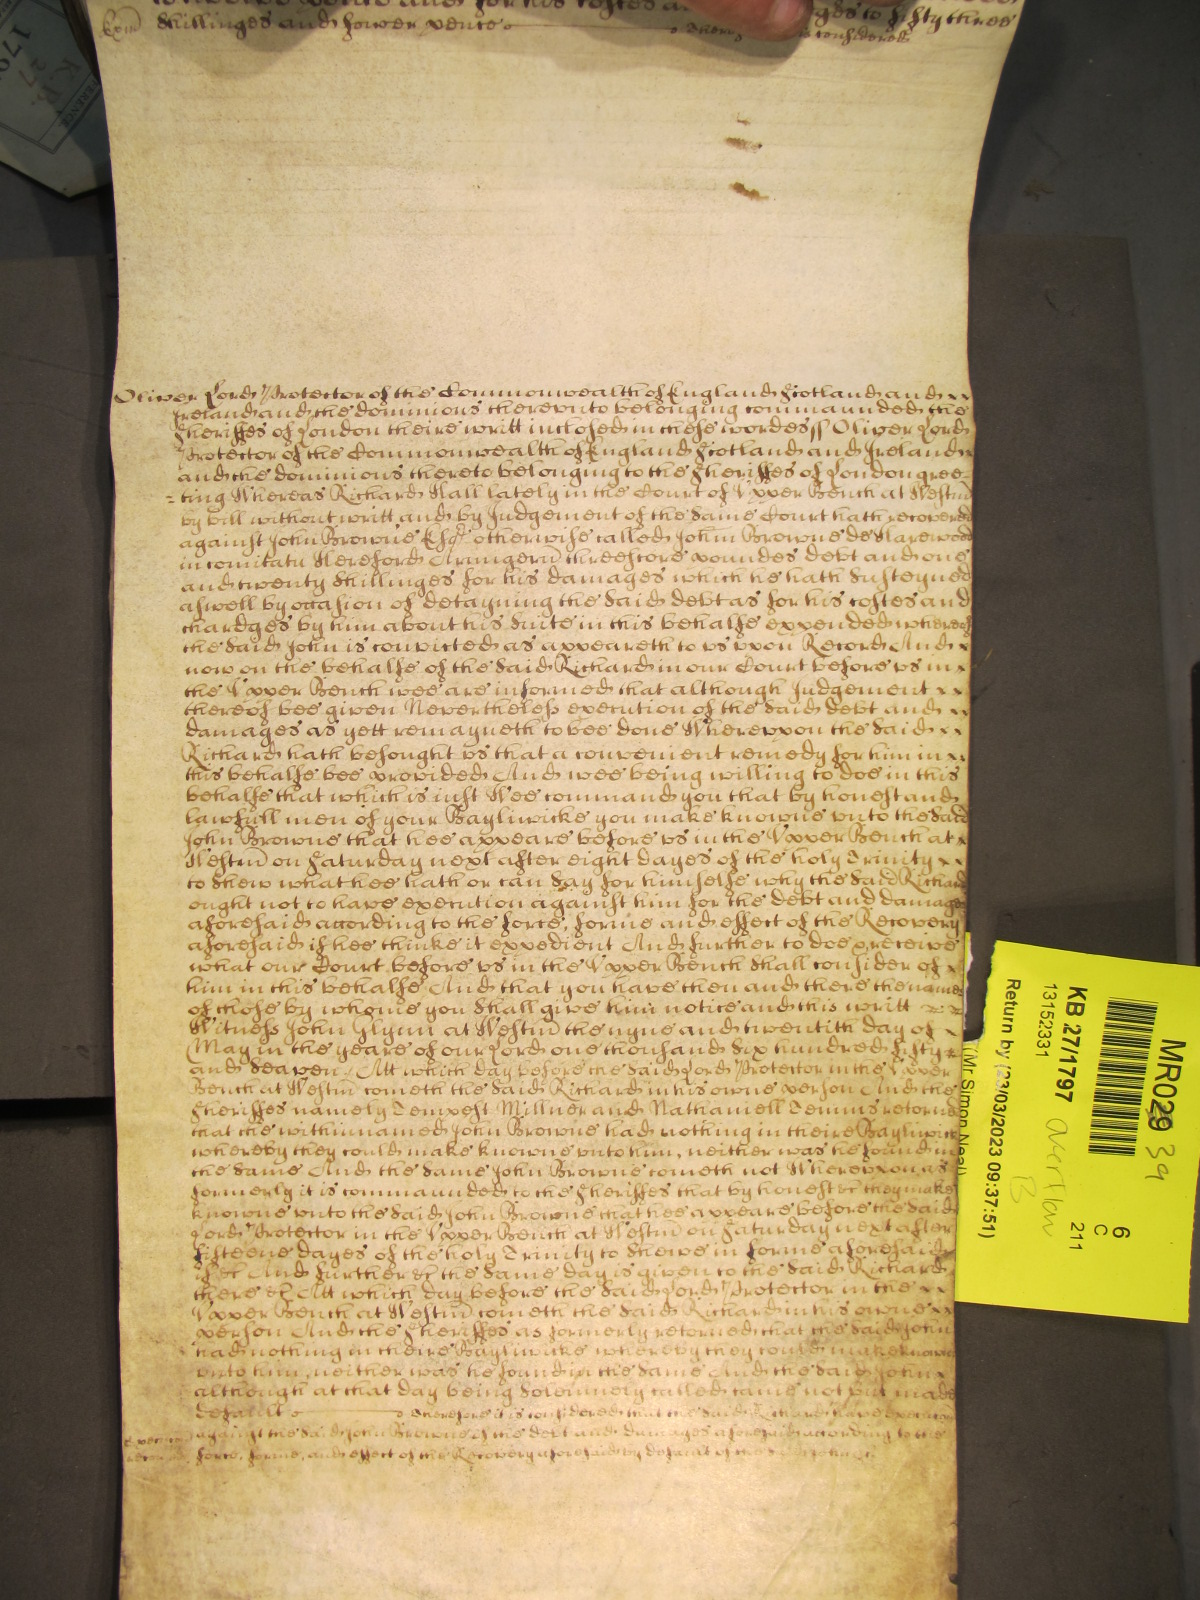 shillinges and fower pence
Oliver Lord Protector of the Commonwealth of England Scotland and
Ireland and the dominions therevnto belonging commaunded the
Sheriffes of London theire writt inclosed in these wordes ss Oliver Lord
Protector of the Commonwealth of England Scotland and Ireland
and the dominions thereto belonging to the Sheriffes of London gree-
=ting Whereas Richard Hall lately in the Court of Vpper Bench at Westm
by bill without writt and by Judgement of the same Court hath recovered
against John Browne Esqr otherwise called John Browne de Harewood
in comitatu Hereford Armigerum threescore poundes debt and one
and twenty shillinges for his damages which he hath susteyned
aswell by occasion of detayning the said debt as for his costes and
chardges by him about his suite in this behalfe expended whereof
the said John is convicted as appeareth to vs vpon Record And
now on the behalfe of the said Richard in our Court before vs in
the Vpper Bench wee are informed that although Judgement
thereof bee given Neverthelesse execution of the said debt and
damages as yett remayneth to bee done Wherevpon the said
Richard hath besought vs that a convenient remedy for him in
this behalfe bee provided And wee being willing to doe in this
behalfe that which is iust Wee command you that by honest and
lawfull men of your Bayliwicke you make knowne vnto the said
John Browne that hee appeare before vs in the Vpper Bench at
Westm on Saturday next after eight dayes of the holy Trinity
to shew what hee hath or can say for himselfe why the said Richard
ought not to have execution against him for the debt and damages
aforesaid according to the force, forme and effect of the Recovery
aforesaid if hee thinke it expedient And further to doe & receive
what our Court before vs in the Vpper Bench shall consider of
him in this behalfe And that you have then and there the names
of those by whome you shall give him notice and this writt
Witness John Glynn at Westm the nyne and twentith day of
May in the yeare of our Lord one thousand six hundred fifty
and seaven. Att which day before the said Lord Protector in the Vpper
Bench at Westm cometh the said Richard in his owne person And the
Sheriffes namely Tempest Millner and Nathaniell Temms retorne
that the withinnamed John Browne had nothing in theire Bayliwicke
whereby they could make knowne vnto him, neither was he found in
the same And the same John Browne cometh not Wherevpon as
formerly it is commaunded to the Sheriffes that by honest &c they make
knowne vnto the said John Browne that hee appeare before the said
Lord Protector in the Vpper Bench at Westm on Saturday next after
fifteene dayes of the holy Trinity to shewe in forme aforesaid
if &c And further &c the same day is given to the said Richard
there &c Att which day before the said Lord Protector in the
Vpper Bench at Westm cometh the said Richard in his owne
person And the Sheriffes as formerly retorned that the said John
had nothing in theire Bayliwicke whereby they could make knowne
vnto him, neither was he found in the same And the said John
although at that day being solemnely called came not but made
default Therefore it is considered that the said Richard have execution
against the said John Browne of the debt and damages aforesaid according to the
force, forme, and effect of the Recovery aforesaid by default of the said John &c
MR029 39
6
C
211
KB 27/1797 overflow B
13152331
Return by (23/03/2023 09:37:51)
(Mr. Simon Neal)